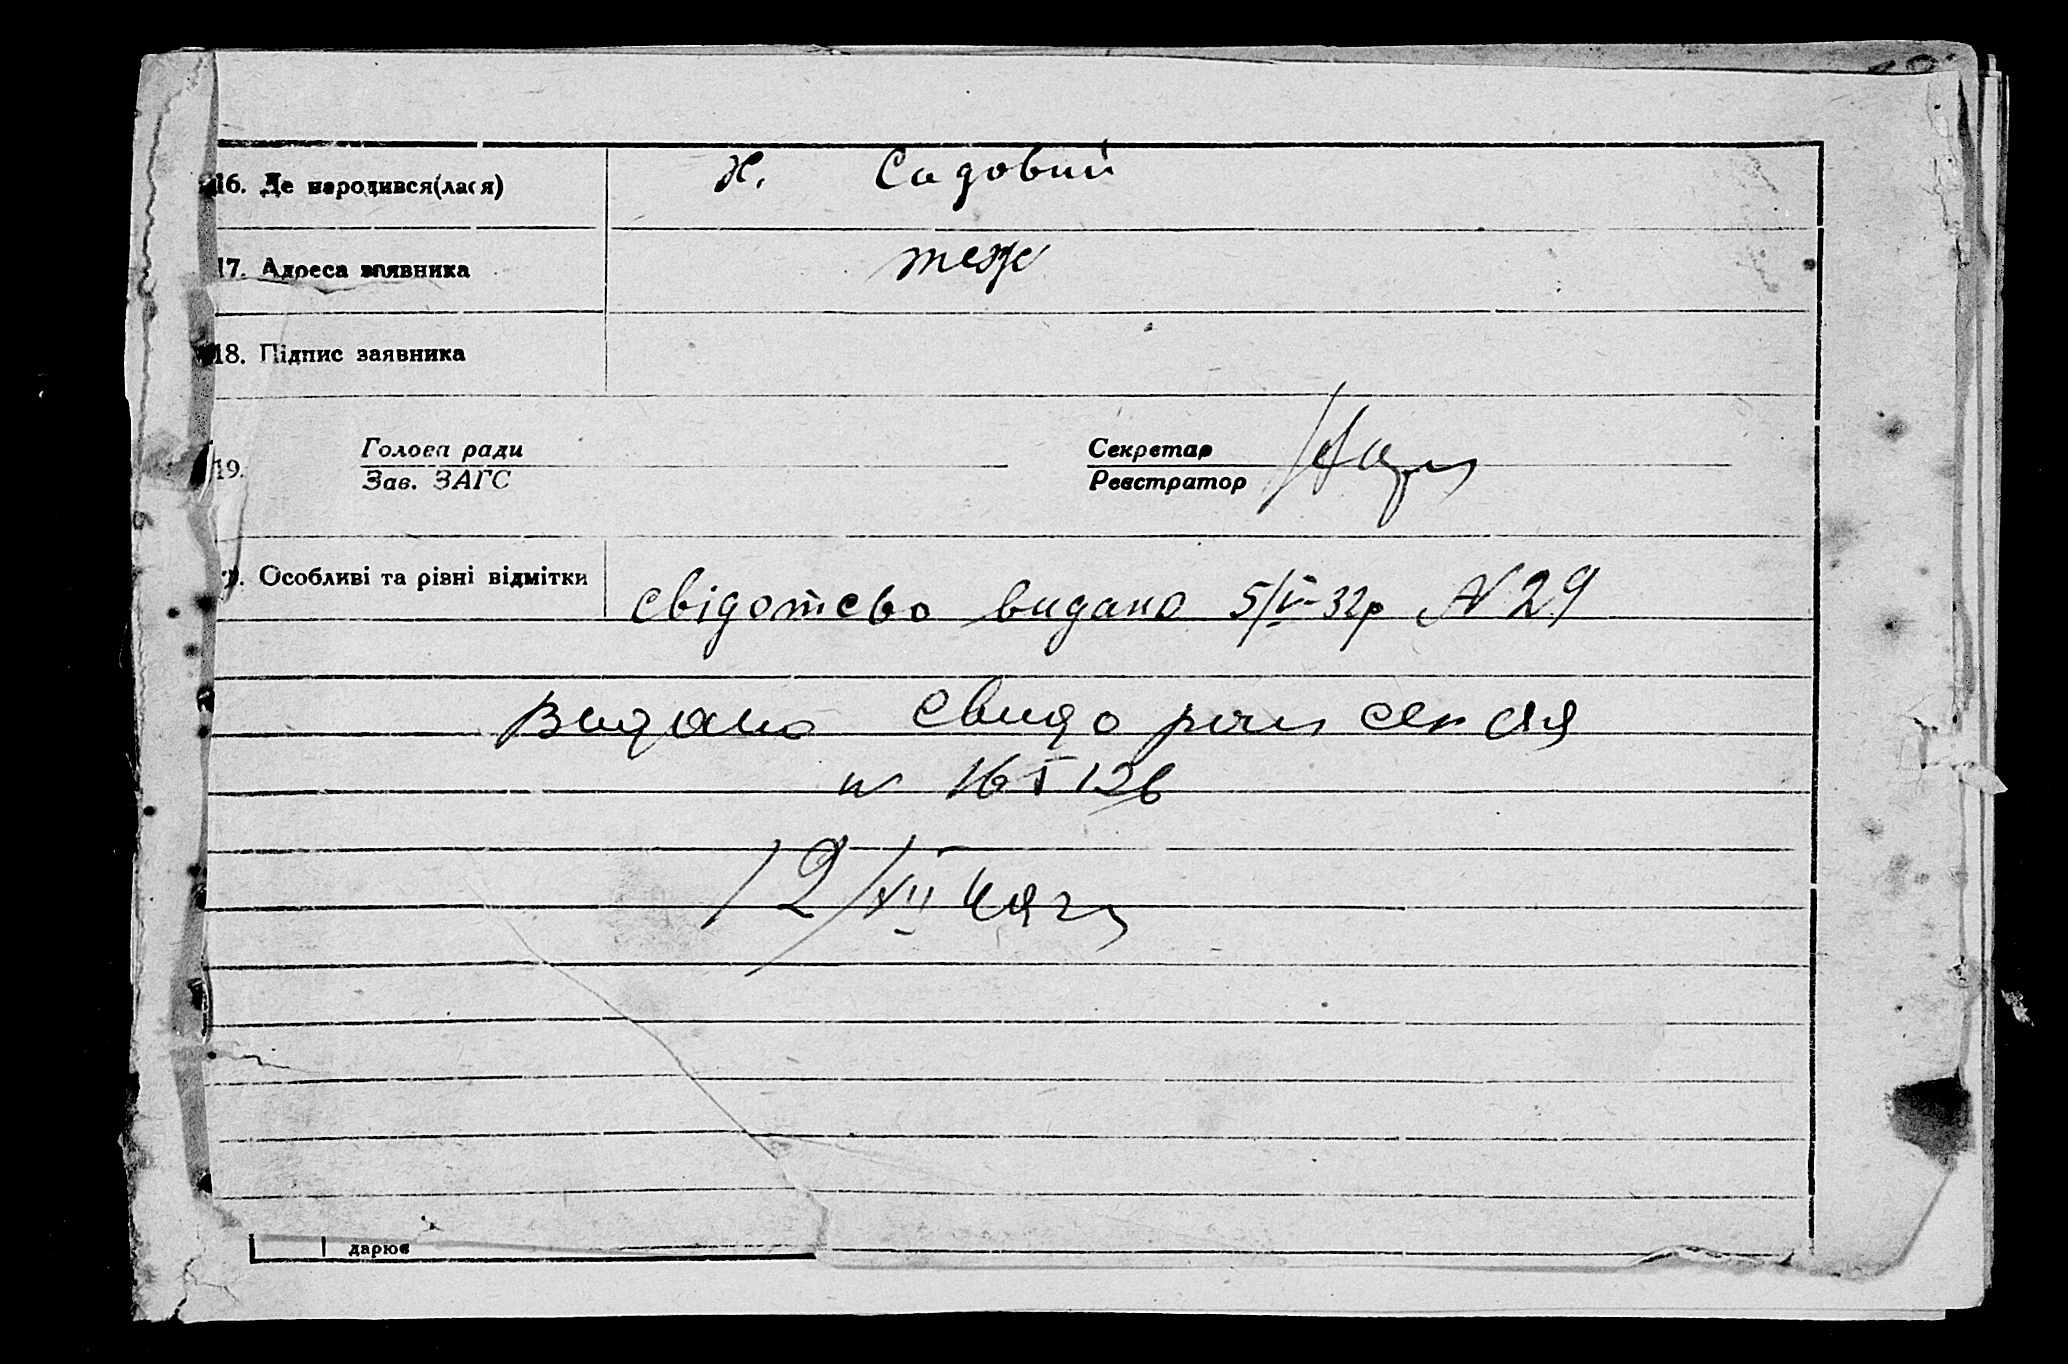 16. Де народився(лася) х. Садовий
17. Адреса заявника теж
18. Підпис заявника
19. Голова ради Секретар
Зав. ЗАГС Реєстратор
Особливі та різні відмітки
свідотство видано 5/V-32р N 29
Видано свидо
N 16
12/XII
дарює